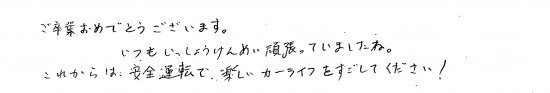 ご卒業おめでとうございます。
いつもいっしょうけんめい頑張っていましたね。
これからは、安全運転で、楽しいカーライフをすごしてください!